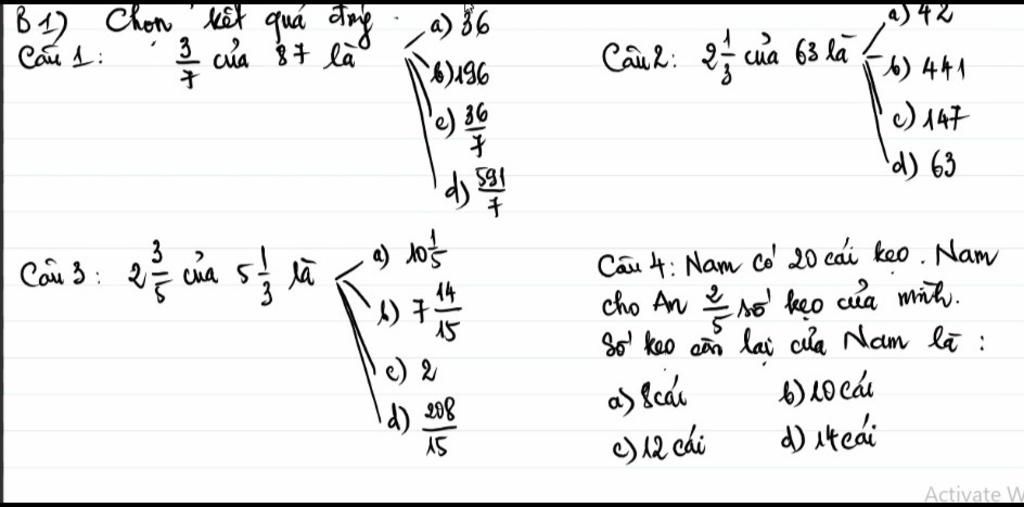 B 1) Chọn kết quả đúng.
Câu 1: 3/7 của 87 là
a) 36
b) 196
c) 36/7
d) 591/7
Câu 2: 2 1/3 của 63 là
a) 42
b) 441
c) 147
d) 63
Câu 3: 2 3/5 của 5 1/3 là
a) 10 1/5
b) 7 14/15
c) 2
d) 208/15
Câu 4: Nam có 20 cái kẹo. Nam
cho An 2/5 số kẹo của mình.
Số kẹo còn lại của Nam là :
a) 8 cái b) 10 cái
c) 12 cái d) 14 cái
Activate W